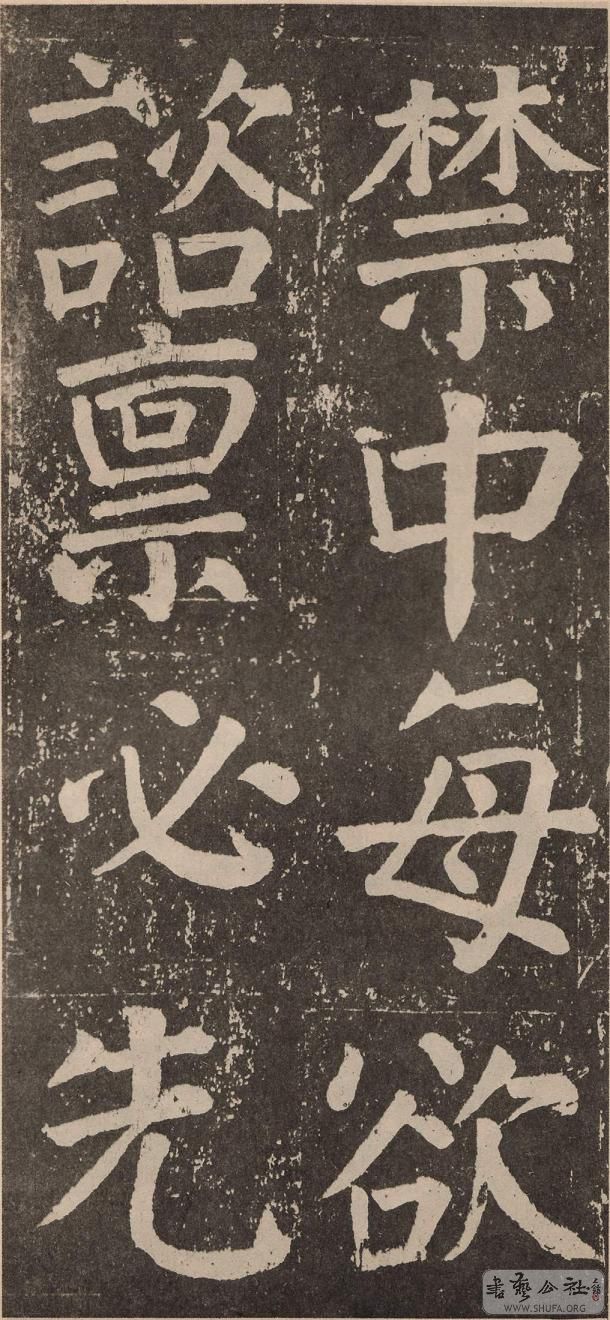 禁中每欲
諮稟必先
書藝公社
WWW.SHUFA.ORG